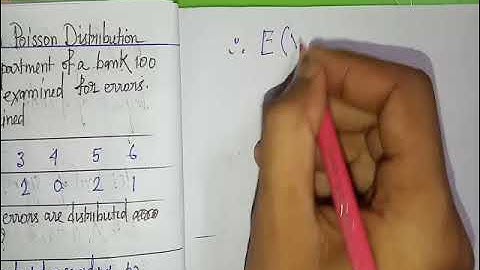 Poisson Distribution
partment of a bank 100
examined for errors.
ined
3 4 5 6
2 0 2 1
errors are distributed
∴ E(